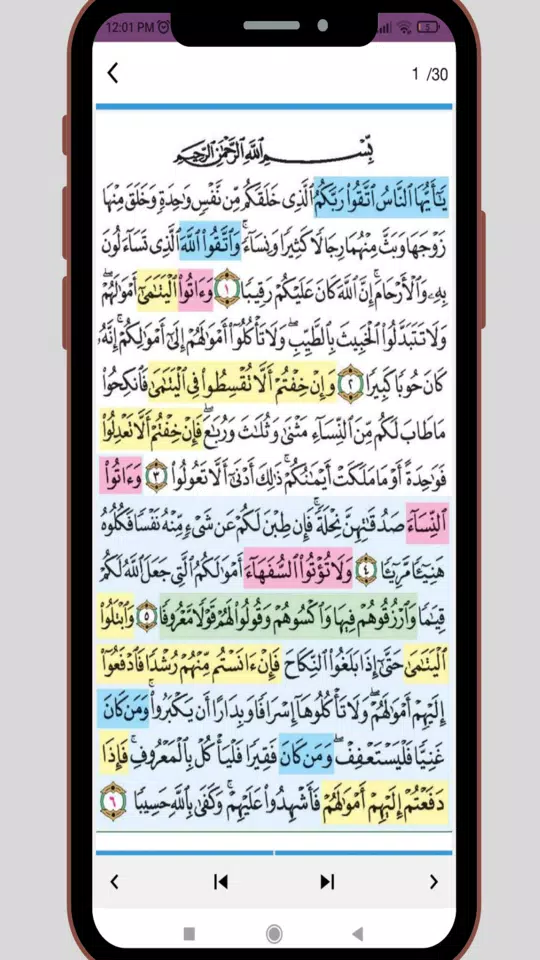 12:01 PM 5
1 /30
بِسْمِ اللَّهِ الرَّحْمَٰنِ الرَّحِيمِ
يَٰٓأَيُّهَا النَّاسُ اتَّقُوا۟ رَبَّكُمُ الَّذِى خَلَقَكُم مِّن نَّفْسٍ وَٰحِدَةٍ وَخَلَقَ مِنْهَا
زَوْجَهَا وَبَثَّ مِنْهُمَا رِجَالًا كَثِيرًا وَنِسَآءً ۚ وَاتَّقُوا۟ اللَّهَ الَّذِى تَسَآءَلُونَ
بِهِۦ وَالْأَرْحَامَ ۚ إِنَّ اللَّهَ كَانَ عَلَيْكُمْ رَقِيبًا ١ وَءَاتُوا۟ الْيَتَٰمَىٰٓ أَمْوَٰلَهُمْ ۖ
وَلَا تَتَبَدَّلُوا۟ الْخَبِيثَ بِالطَّيِّبِ ۖ وَلَا تَأْكُلُوٓا۟ أَمْوَٰلَهُمْ إِلَىٰٓ أَمْوَٰلِكُمْ ۚ إِنَّهُۥ
كَانَ حُوبًا كَبِيرًا ٢ وَإِنْ خِفْتُمْ أَلَّا تُقْسِطُوا۟ فِى الْيَتَٰمَىٰ فَانكِحُوا۟
مَا طَابَ لَكُم مِّنَ النِّسَآءِ مَثْنَىٰ وَثُلَٰثَ وَرُبَٰعَ ۖ فَإِنْ خِفْتُمْ أَلَّا تَعْدِلُوا۟
فَوَٰحِدَةً أَوْ مَا مَلَكَتْ أَيْمَٰنُكُمْ ۚ ذَٰلِكَ أَدْنَىٰٓ أَلَّا تَعُولُوا۟ ٣ وَءَاتُوا۟
النِّسَآءَ صَدُقَٰتِهِنَّ نِحْلَةً ۚ فَإِن طِبْنَ لَكُمْ عَن شَىْءٍ مِّنْهُ نَفْسًا فَكُلُوهُ
هَنِيٓـًٔا مَّرِيٓـًٔا ٤ وَلَا تُؤْتُوا۟ السُّفَهَآءَ أَمْوَٰلَكُمُ الَّتِى جَعَلَ اللَّهُ لَكُمْ
قِيَٰمًا وَارْزُقُوهُمْ فِيهَا وَاكْسُوهُمْ وَقُولُوا۟ لَهُمْ قَوْلًا مَّعْرُوفًا ٥ وَابْتَلُوا۟
الْيَتَٰمَىٰ حَتَّىٰٓ إِذَا بَلَغُوا۟ النِّكَاحَ فَإِنْ ءَانَسْتُم مِّنْهُمْ رُشْدًا فَادْفَعُوٓا۟
إِلَيْهِمْ أَمْوَٰلَهُمْ ۖ وَلَا تَأْكُلُوهَآ إِسْرَافًا وَبِدَارًا أَن يَكْبَرُوا۟ ۚ وَمَن كَانَ
غَنِيًّا فَلْيَسْتَعْفِفْ ۖ وَمَن كَانَ فَقِيرًا فَلْيَأْكُلْ بِالْمَعْرُوفِ ۚ فَإِذَا
دَفَعْتُمْ إِلَيْهِمْ أَمْوَٰلَهُمْ فَأَشْهِدُوا۟ عَلَيْهِمْ ۚ وَكَفَىٰ بِاللَّهِ حَسِيبًا ٦